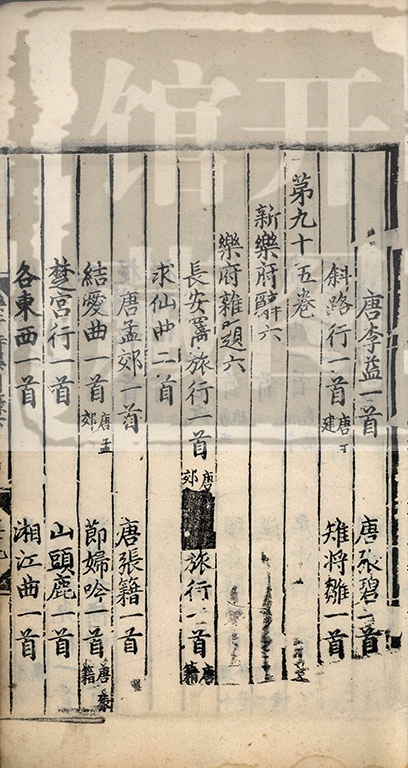 唐李益一首 唐張碧二首
斜路行一首 唐王建 雉將雛一首
第九十五卷
新樂府辭六
樂府雜題六
長安羈旅行一首 唐 郊 旅行一首 唐 籍
求仙曲二首
唐孟郊一首 唐張籍一首
結愛曲一首 唐孟郊 節婦吟一首 唐張籍
楚宮行一首 山頭鹿一首
各東西一首 湘江曲一首
开
馆